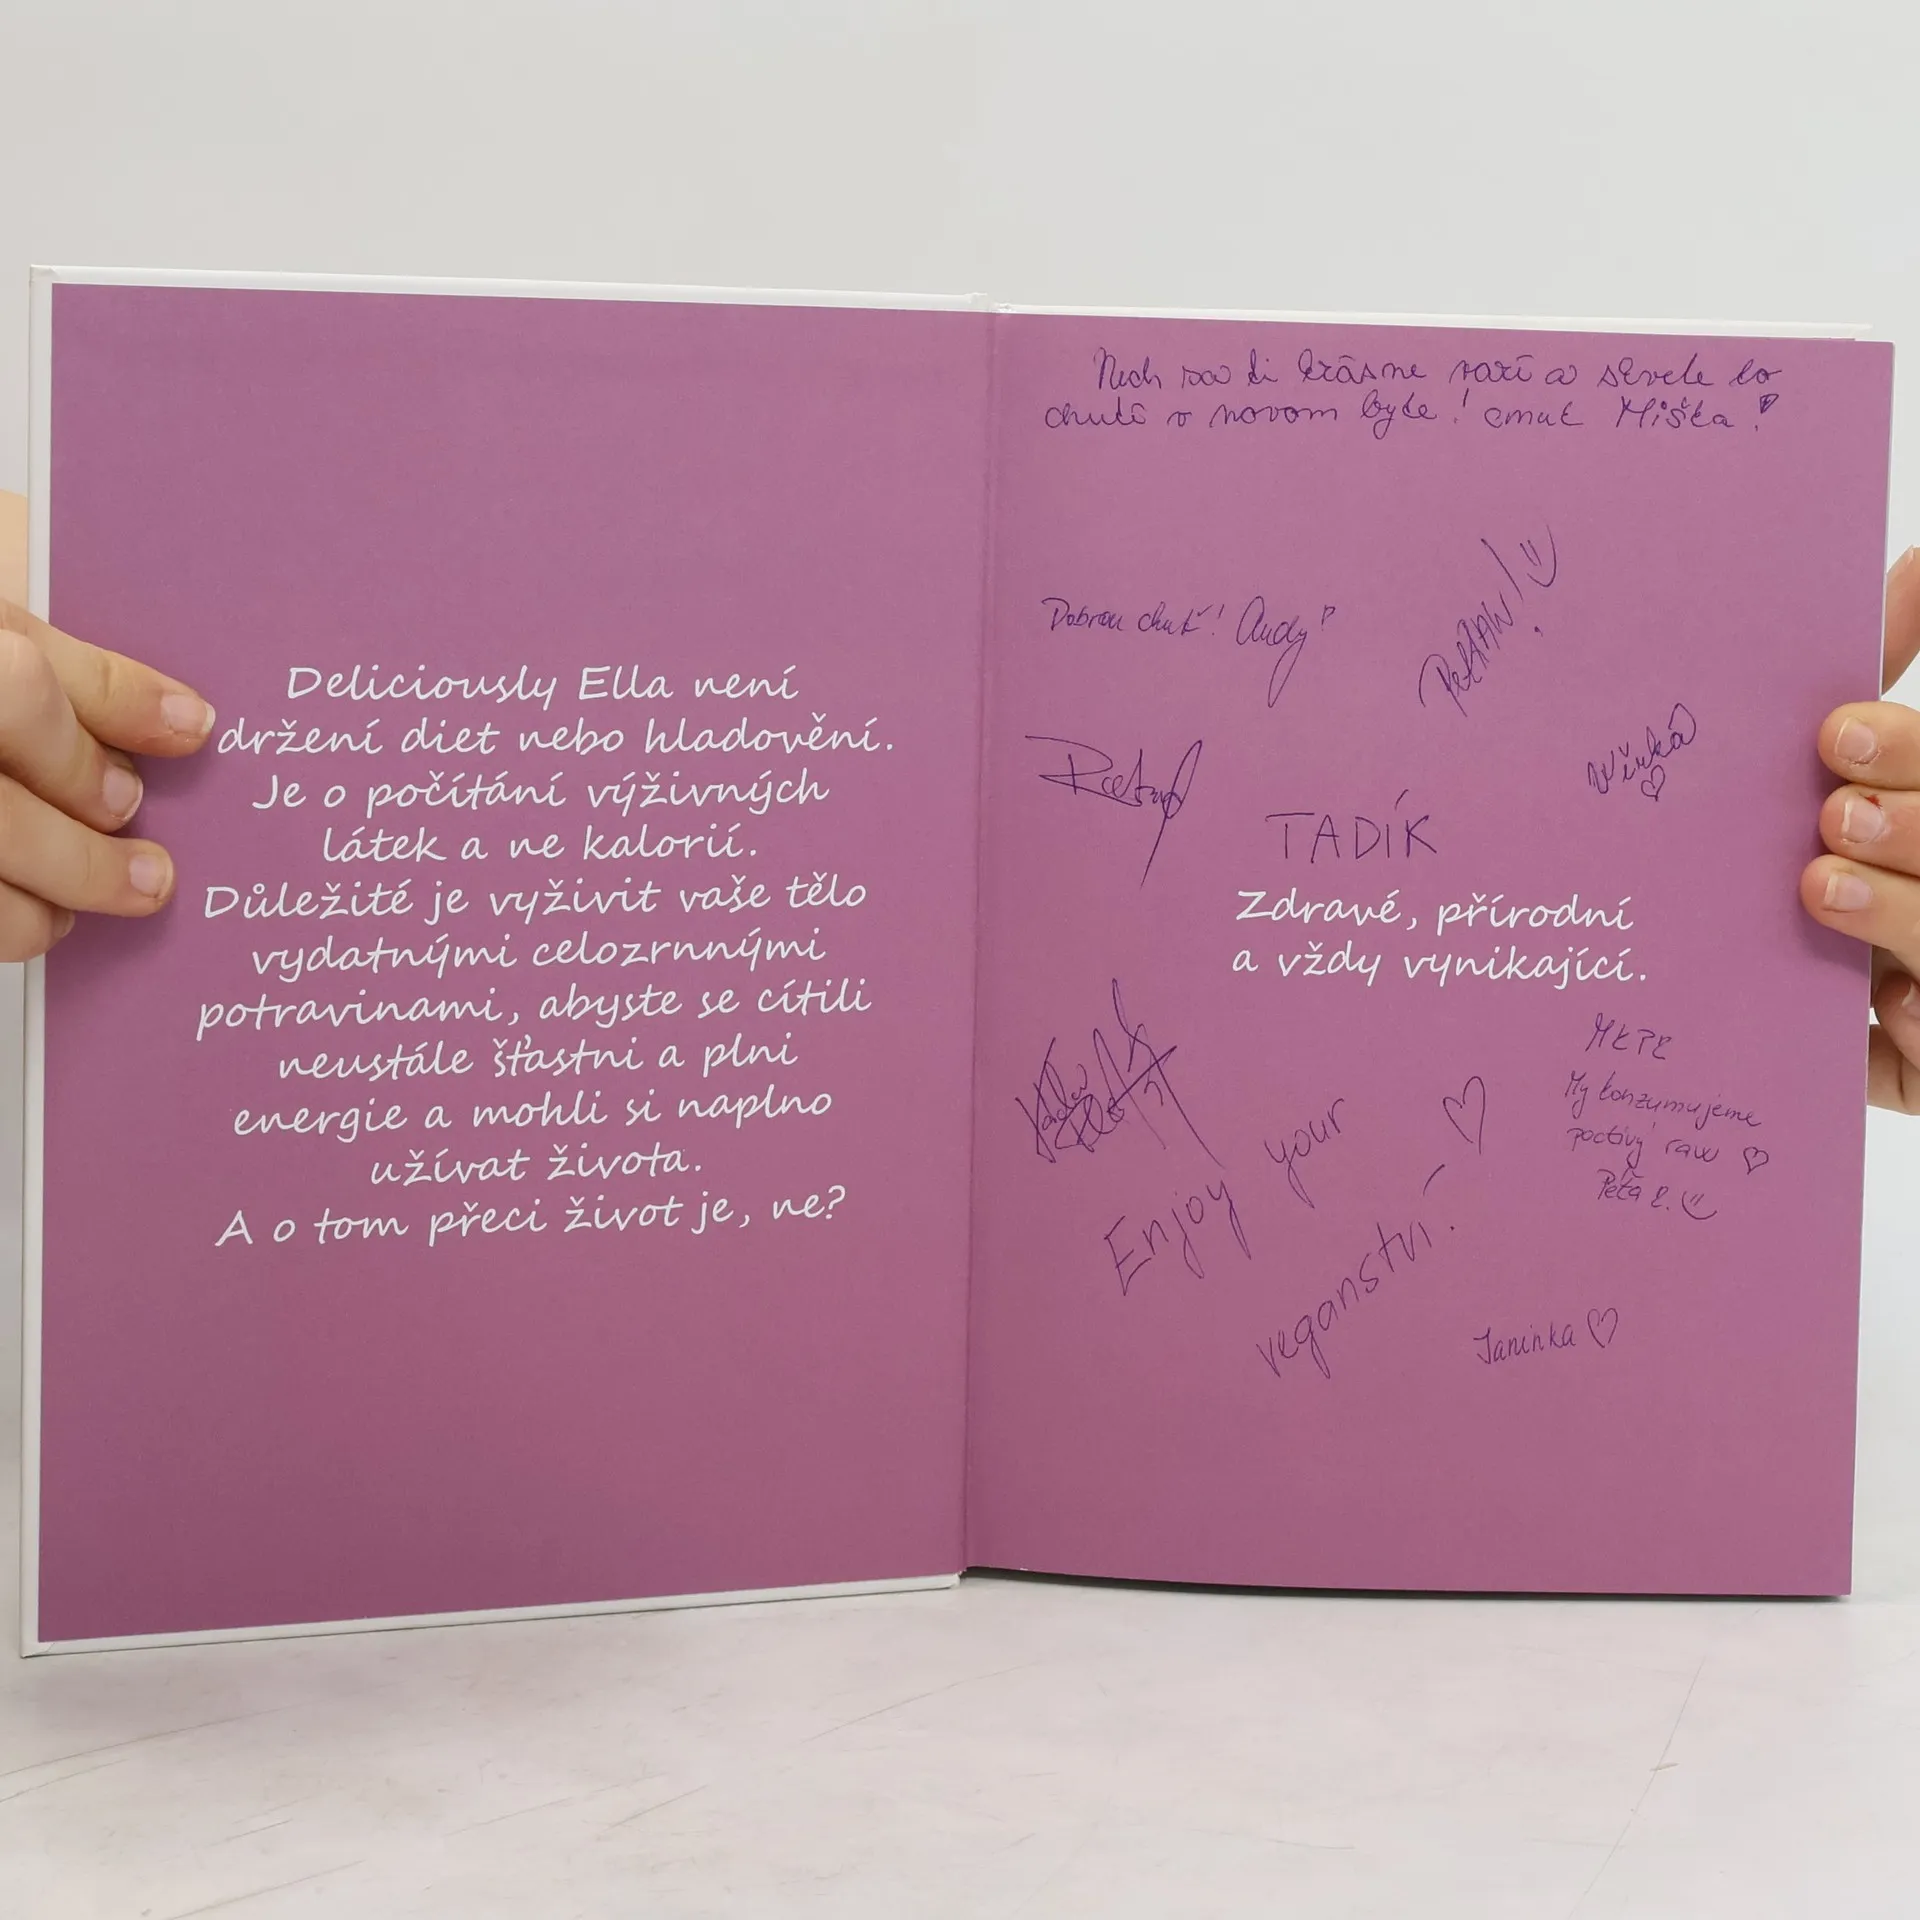 Deliciously Ella není
držení diet nebo hladovění.
Je o počítání výživných
látek a ne kalorií.
Důležité je vyživit vaše tělo
vydatnými celozrnnými
potravinami, abyste se cítili
neustále šťastni a plni
energie a mohli si naplno
užívat života.
A o tom přeci život je, ne?
Nech sa ti krásne varí a skvele to
chutí v novom byte! cmuk Miška!
Dobrou chuť! Andy
TADÍK
Zdravé, přírodní
a vždy vynikající.
My konzumujeme
poctivý raw
Peťa
Enjoy your
veganství!
Janinka